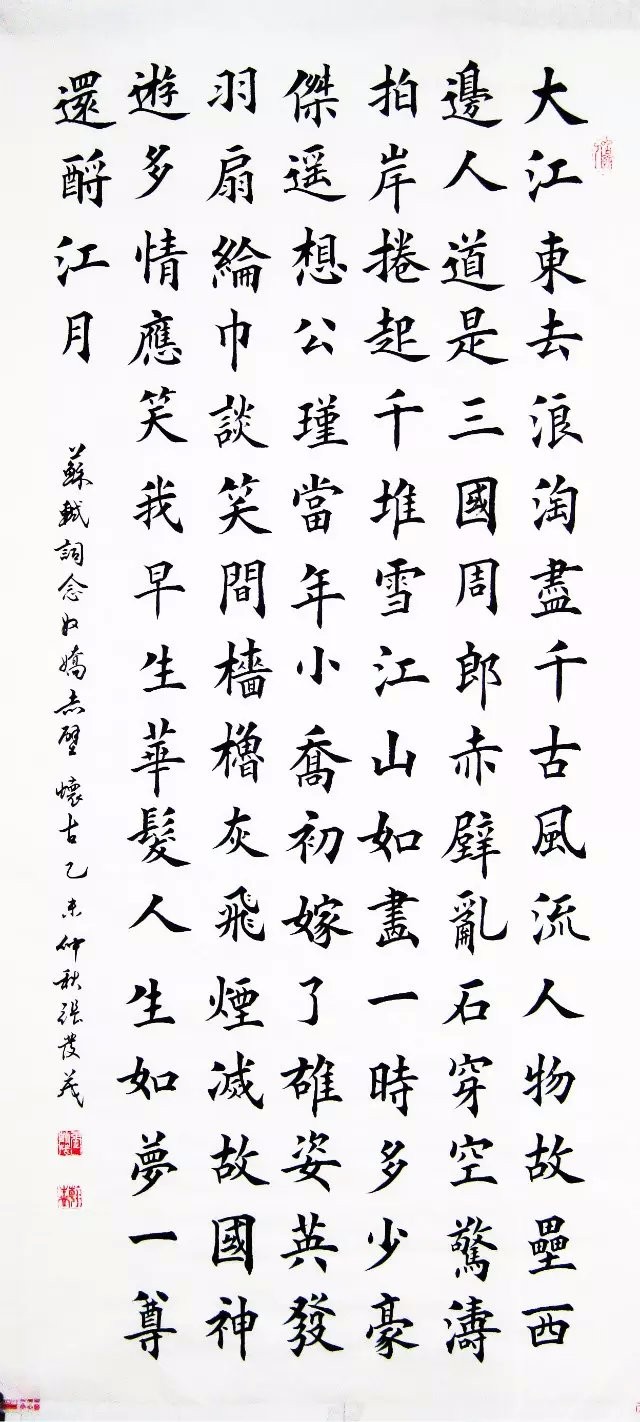 大江東去浪淘盡千古風流人物故壘西
邊人道是三國周郎赤壁亂石穿空驚濤
拍岸捲起千堆雪江山如畫一時多少豪
傑遥想公瑾當年小喬初嫁了雄姿英發
羽扇綸巾談笑間檣櫓灰飛煙滅故國神
遊多情應笑我早生華髮人生如夢一尊
還酹江月
蘇軾詞念奴嬌赤壁懷古乙未仲秋張發義